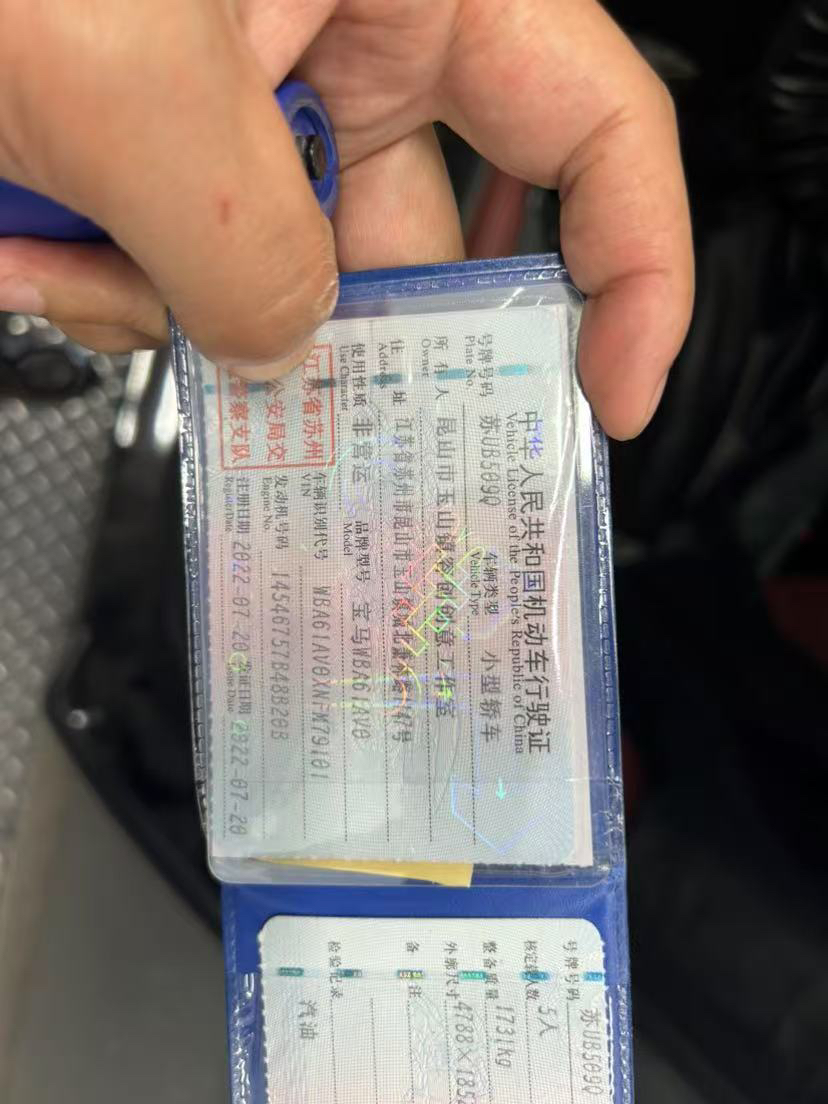 中华人民共和国机动车行驶证
Vehicle License of the People's Republic of China
号牌号码 苏UB509Q 车辆类型 小型轿车
Plate No. Vehicle Type
所有人 昆山市玉山镇 创创意工作室
Owner
住址 江苏省苏州市昆山市玉山镇城北 47号
Address
使用性质 非营运 品牌型号 宝马WBA61AV0
Use Character Model
江苏省苏州
公安局交
警察支队
车辆识别代号
VIN
发动机号码 14546757B48B20B
Engine No.
注册日期 2022-07-20 发证日期 2022-07-20
Register Date Issue Date
号牌号码 苏UB509Q
核定载人数 5人
整备质量 1731kg
外廓尺寸 4788×185
备注
检验记录
汽油